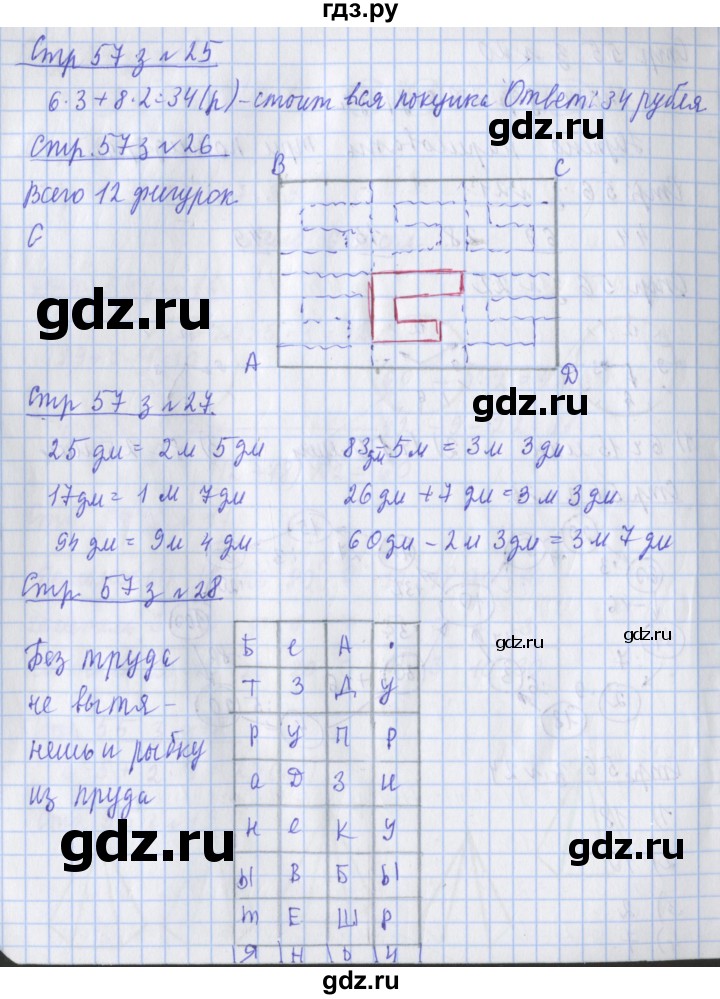 гдз.ру
Стр 57 з № 25
6·3+8·2=34(р)-стоит вся покупка Ответ: 34 рубля
gdz.ru
Стр. 57 з № 26
Всего 12 фигурок.
С
B C
A D
gdz.ru
gdz.ru
Стр 57 з № 27.
25 дм = 2м 5 дм 83дм-5м = 3м 3дм
17дм = 1 м 7дм 26дм+7дм=3м 3дм
94дм = 9м 4дм 60дм-2м 3дм=3м 7дм
Стр. 57 з № 28
gdz.ru
Без труда
не вытя-
нешь и рыбку
из пруда
Б е А .
Т З Д У
Р У П Р
а Д З И
Н е К У
Ы В Б Ы
т Е Ш Р
Я Н Ь И
gdz.ru
gdz.ru
gdz.ru
gdz.ru